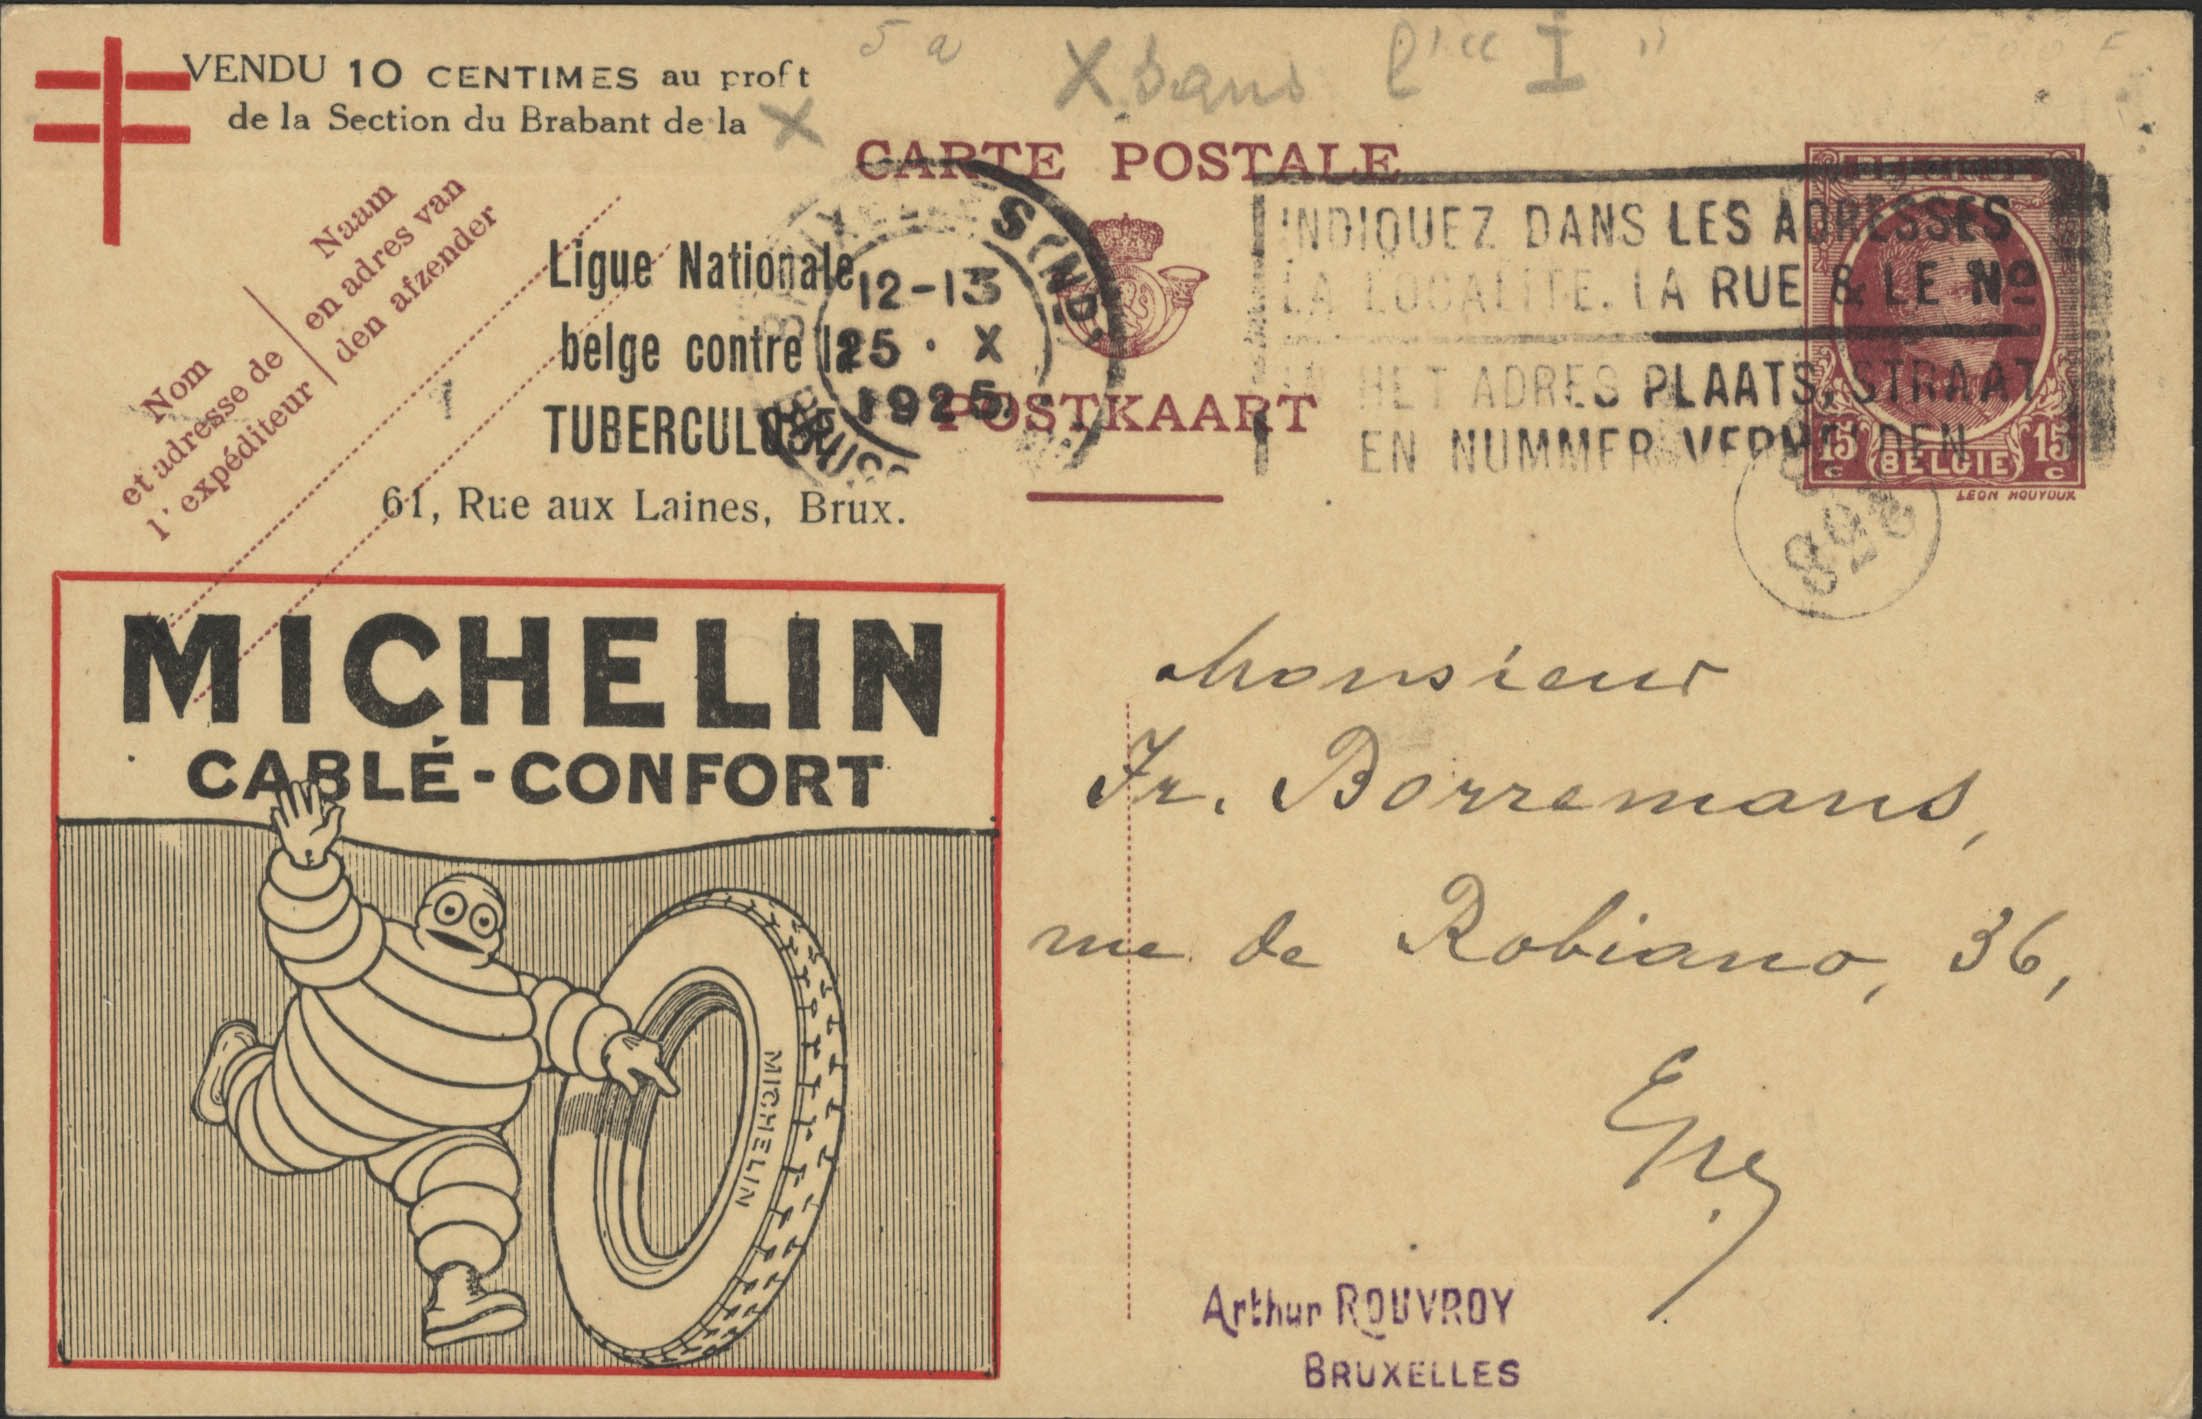 5 a X sans l' " I "
VENDU 10 CENTIMES au prof t
de la Section du Brabant de la X
CARTE POSTALE
BELGIQUE
Naam
en adres van
den afzender
Nom
et adresse de
l'expéditeur
Ligue Nationale
belge contre la
TUBERCULOSE
61, Rue aux Laines, Brux.
1
BRUXELLES (NORD)
12-13
25 · X
1925
BRUSSEL
POSTKAART
INDIQUEZ DANS LES ADRESSES
LA LOCALITE. LA RUE & LE No
IN HET ADRES PLAATS, STRAAT
EN NUMMER VERMELDEN
15 c BELGIE 15 c
LEON HOUYOUX
MICHELIN
CABLÉ-CONFORT
MICHELIN
Monsieur
Fr. Borremans,
rue de Robiano, 36,
Arthur ROUVROY
BRUXELLES